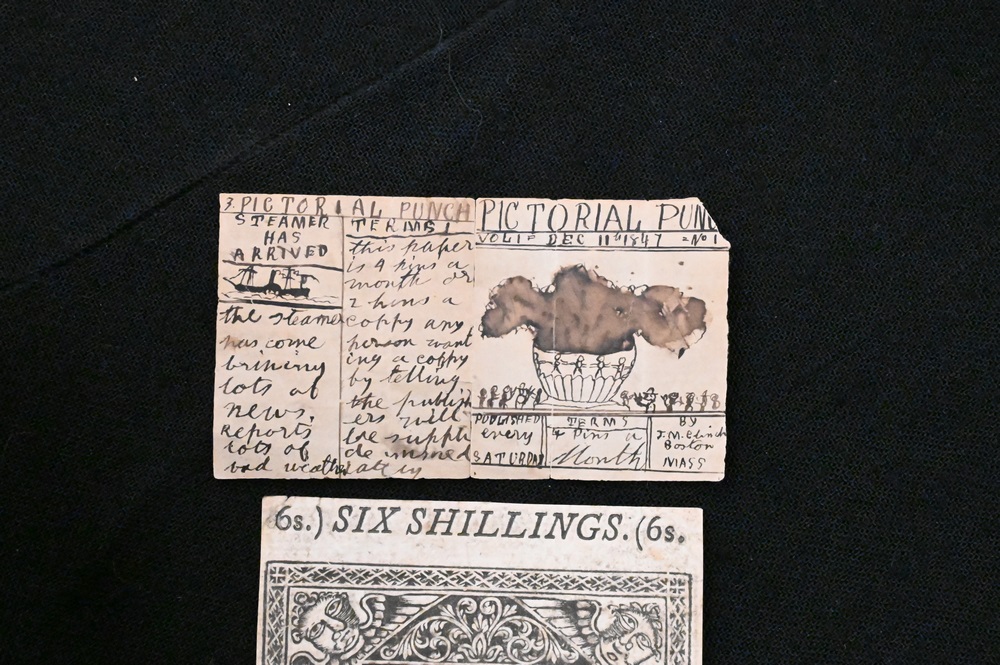 3. PICTORIAL PUNCH
STEAMER
HAS
ARRIVED
the steamer
has come
brining
lots of
news.
Reports
lots of
bad weather
TERMS!
this paper
is 4 pins a
month or
2 pins a
coppy any
person want
ing a coppy
by telling
the publish
ers will
be suppli
ed immed
iately
PICTORIAL PUN
VOL 1 = DEC 11th 1847 = No 1
PUBLISHED
every
SATURDAY
TERMS
4 Pins a
Month
BY
J.M. Clinch
Boston
MASS
6s.) SIX SHILLINGS. (6s.